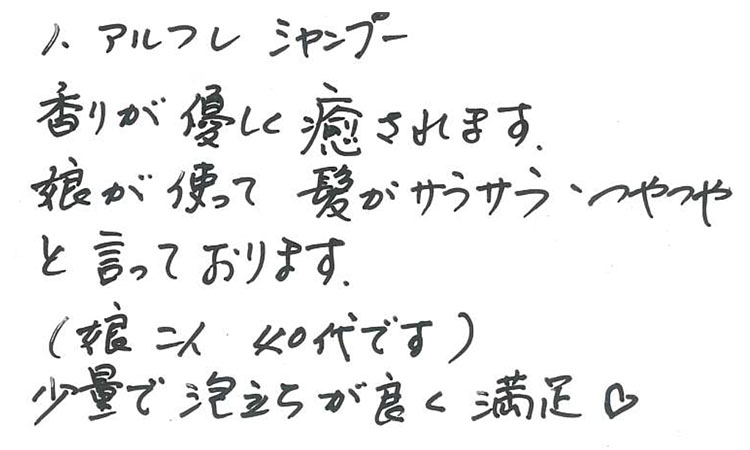 1. アルフレ シャンプー
香りが優しく癒されます.
娘が使って 髪がサラサラ・つやつや
と言っております.
(娘二人 40代です)
少量で泡立ちが良く満足♡